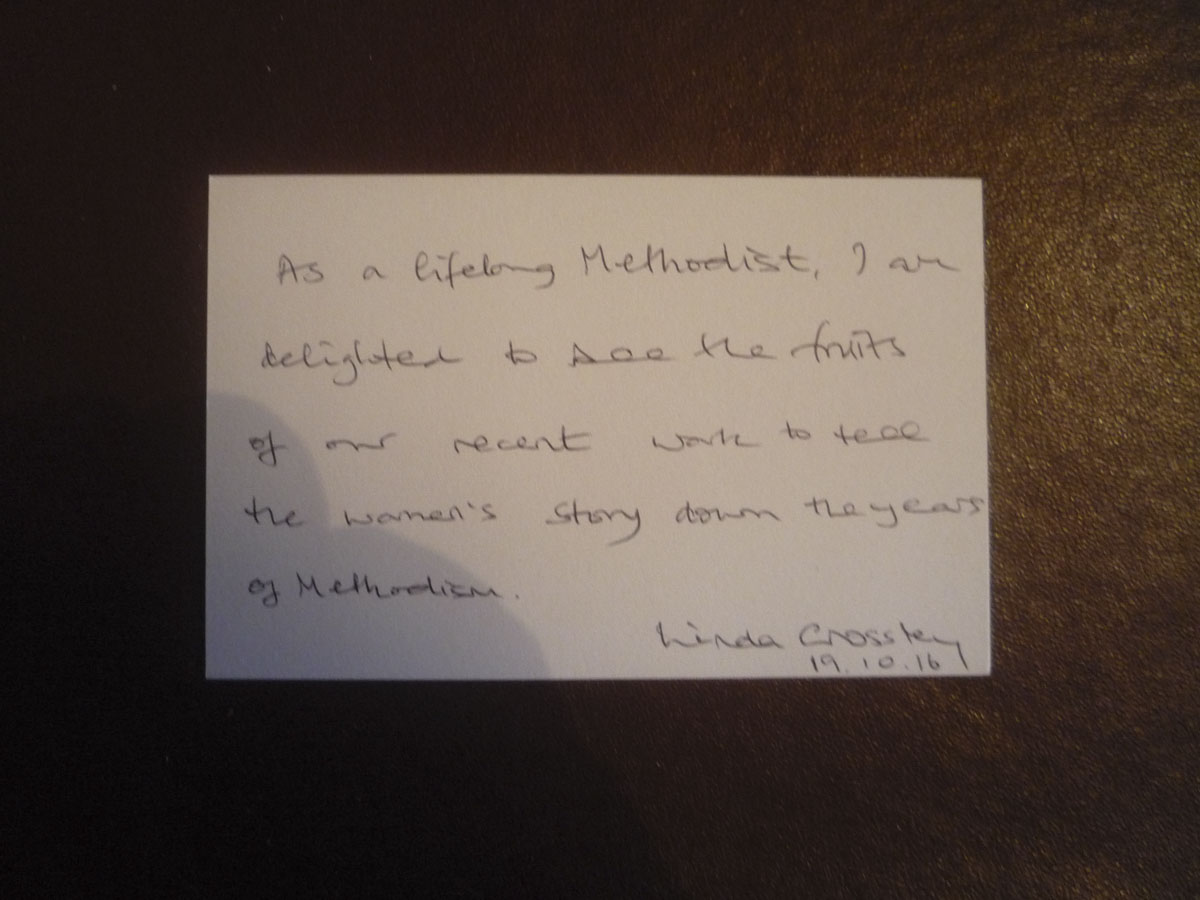 As a lifelong Methodist, I am
delighted to see the fruits
of our recent work to tell
the women's story down the years
of Methodism.
Linda Crossley
19.10.16